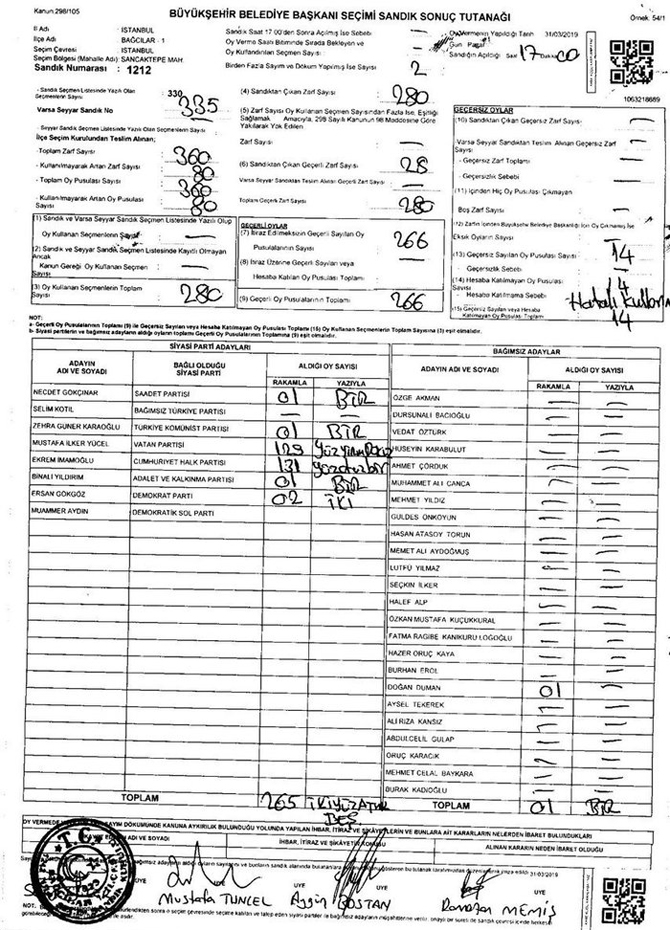 Kanun:298/105
BÜYÜKŞEHİR BELEDİYE BAŞKANI SEÇİMİ SANDIK SONUÇ TUTANAĞI
Örnek: 54/1
İl Adı : İSTANBUL
İlçe Adı : BAĞCILAR - 1
Seçim Çevresi : İSTANBUL
Seçim Bölgesi (Mahalle Adı): SANCAKTEPE MAH
Sandık Numarası : 1212
Sandık Saat 17:00'den Sonra Açılmış İse Sebebi
Oy Verme Saati Bitiminde Sırada Bekleyen ve
Oy Kullandırılan Seçmen Sayısı
Birden Fazla Sayım ve Döküm Yapılmış İse Sayısı 2
Oy Vermenin Yapıldığı Tarih 31/03/2019
Gün Pazar
Sandığın Açıldığı Saat 17 Dakika 00
1063218689
- Sandık Seçmen Listesinde Yazılı Olan Seçmenlerin Sayısı 330 335
Varsa Seyyar Sandık No
- Seyyar Sandık Seçmen Listesinde Yazılı Olan Seçmenlerin Sayısı
İlçe Seçim Kurulundan Teslim Alınan;
- Toplam Zarf Sayısı 360
- Kullanılmayarak Artan Zarf Sayısı 80
- Toplam Oy Pusulası Sayısı 360
- Kullanılmayarak Artan Oy Pusulası Sayısı 80
(4) Sandıktan Çıkan Zarf Sayısı 280
(5) Zarf Sayısı Oy Kullanan Seçmen Sayısından Fazla İse, Eşitliği
Sağlamak Amacıyla, 298 Sayılı Kanunun 98 Maddesine Göre
Yakılarak Yok Edilen
Zarf Sayısı —
(6) Sandıktan Çıkan Geçerli Zarf Sayısı 28
Varsa Seyyar Sandıktan Teslim Alınan Geçerli Zarf Sayısı —
Toplam Geçerli Zarf Sayısı 280
GEÇERSİZ OYLAR
(10) Sandıktan Çıkan Geçersiz Zarf Sayısı —
Varsa Seyyar Sandıktan Teslim Alınan Geçersiz Zarf Sayısı —
- Geçersiz Zarf Toplamı —
- Geçersizlik Sebebi —
(11) İçinden Hiç Oy Pusulası Çıkmayan
Boş Zarf Sayısı —
(12) Zarfın İçinden Büyükşehir Belediye Başkanlığı İçin Oy Çıkmamış İse
Eksik Oyların Sayısı —
(13) Geçersiz Sayılan Oy Pusulası Sayısı 14
Geçersizlik Sebebi
(14) Hesaba Katılmayan Oy Pusulası Sayısı
Hesaba Katılmama Sebebi Hatalı Kullanım
(15) Geçersiz Sayılan veya Hesaba Katılmayan Oy Pusulası Toplamı 14
(1) Sandık ve Varsa Seyyar Sandık Seçmen Listesinde Yazılı Olup
Oy Kullanan Seçmen Sayısı
(2) Sandık ve Seyyar Sandık Seçmen Listesinde Kayıtlı Olmayan Ancak
Kanun Gereği Oy Kullanan Seçmen Sayısı —
(3) Oy Kullanan Seçmenlerin Toplam Sayısı 280
GEÇERLİ OYLAR
(7) İtiraz Edilmeksizin Geçerli Sayılan Oy
Pusulalarının Sayısı 266
(8) İtiraz Üzerine Geçerli Sayılan veya
Hesaba Katılan Oy Pusulası Sayısı —
(9) Geçerli Oy Pusulalarının Toplamı 266
NOT:
a- Geçerli Oy Pusulalarının Toplamı (9) ile Geçersiz Sayılan veya Hesaba Katılmayan Oy Pusulası Toplamı (15) Oy Kullanan Seçmenlerin Toplam Sayısına (3) eşit olmalıdır.
b- Siyasi partilerin ve bağımsız adayların aldığı oyların toplamı Geçerli Oy Pusulalarının Toplamına (9) eşit olmalıdır.
SİYASİ PARTİ ADAYLARI
BAĞIMSIZ ADAYLAR
ADAYIN ADI VE SOYADI BAĞLI OLDUĞU SİYASİ PARTİ ALDIĞI OY SAYISI RAKAMLA YAZIYLA
ADAYIN ADI VE SOYADI ALDIĞI OY SAYISI RAKAMLA YAZIYLA
NECDET GÖKÇINAR SAADET PARTİSİ 01 BİR
SELİM KOTİL BAĞIMSIZ TÜRKİYE PARTİSİ — —
ZEHRA GÜNER KARAOĞLU TÜRKİYE KOMÜNİST PARTİSİ 01 BİR
MUSTAFA İLKER YÜCEL VATAN PARTİSİ 129 yüzyirmidokuz
EKREM İMAMOĞLU CUMHURİYET HALK PARTİSİ 131 yüzotuzbir
BİNALİ YILDIRIM ADALET VE KALKINMA PARTİSİ 01 BİR
ERSAN GÖKGÖZ DEMOKRAT PARTİ 02 İKİ
MUAMMER AYDIN DEMOKRATİK SOL PARTİ
ÖZGE AKMAN — —
DURSUNALİ BACIOĞLU — —
VEDAT ÖZTÜRK — —
HÜSEYİN KARABULUT — —
AHMET ÇÖRDÜK — —
MUHAMMET ALİ CANCA — —
MEHMET YILDIZ — —
GÜLDES ÖNKOYUN — —
HASAN ATASOY TORUN — —
MEMET ALİ AYDOĞMUŞ — —
LÜTFÜ YILMAZ — —
SEÇKİN İLKER — —
HALEF ALP — —
ÖZKAN MUSTAFA KÜÇÜKKURAL — —
FATMA RAGİBE KANIKURU LOĞOĞLU — —
HAZER ORUÇ KAYA — —
BURHAN EROL — —
DOĞAN DUMAN 01 —
AYSEL TEKEREK — —
ALİ RIZA KANSIZ — —
ABDULCELİL GULAP — —
ORUÇ KARACIK — —
MEHMET CELAL BAYKARA — —
BURAK KADIOĞLU — —
TOPLAM 265 İKİYÜZATMIŞ BEŞ
TOPLAM 01 BİR
İHBAR, İTİRAZ VE ŞİKAYETİN KONUSU
ALINAN KARARIN NEDEN İBARET OLDUĞU
31/03/2019
ÜYE ÜYE ÜYE
Mustafa TUNCEL
Aygün BOSTAN
Ramazan MEMİŞ